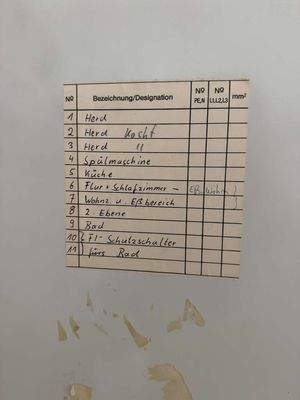 Nº Bezeichnung/Designation Nº PE,N Nº L1,L2,L3 mm²
1 Herd
2 Herd Kocht
3 Herd "
4 Spülmaschine
5 Küche
6 Flur + Schlafzimmer – Eß. Wohn
7 Wohnz. u. Eßbereich
8 2. Ebene
9 Bad
10 FI-Schutzschalter
11 fürs Bad